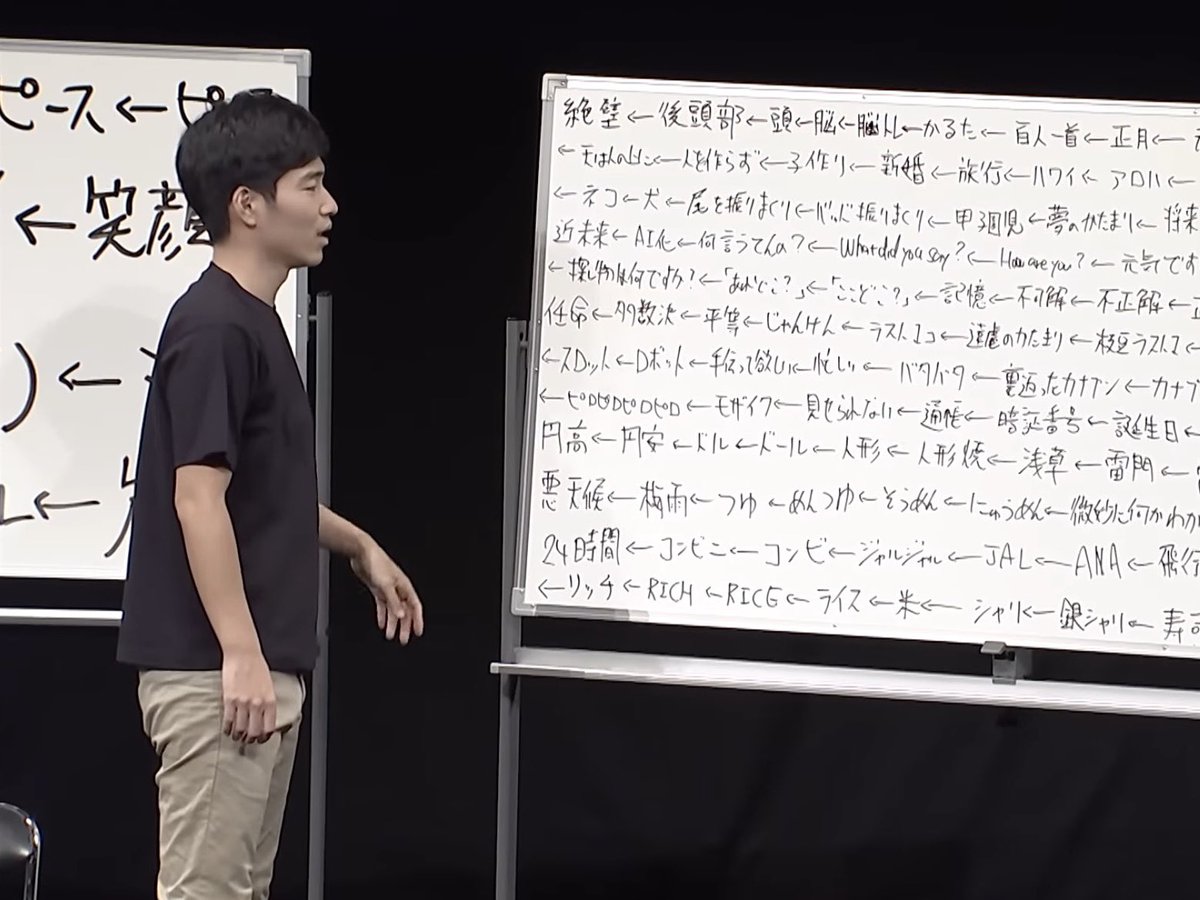 ピース←ピ
←笑顔
)←
L←
絶壁←後頭部←頭←脳←脳トレ←かるた←百人一首←正月←
←天は人の上に←人を作らず←子作り←新婚←旅行←ハワイ←アロハ←
←ネコ←犬←尾を振りまくり←バッド振りまくり←甲子園児←夢のかたまり←将来
近未来←AI化←何言うてんの?←What did you say?←How are you?←元気です
←探し物は何ですか?←「あれどこ?」←「ここどこ?」←記憶←不可解←不正解←
任命←多数決←平等←じゃんけん←ラスト1コ←遠慮のかたまり←枝豆ラスト1←
←スロット←ロボット←手伝って欲しい←忙しい←バタバタ←裏返ったカナブン←カナブ
←ピロピロピロピロ←モザイク←見せられない←通帳←暗証番号←誕生日←
円高←円安←ドル←ドール←人形←人形焼←浅草←雷門←
悪天候←梅雨←つゆ←めんつゆ←そうめん←にゅうめん←微妙に何かわか
24時間←コンビニ←コンビ←ジャルジャル←JAL←ANA←飛行
←リッチ←RICH←RICE←ライス←米←シャリ←銀シャリ←寿司